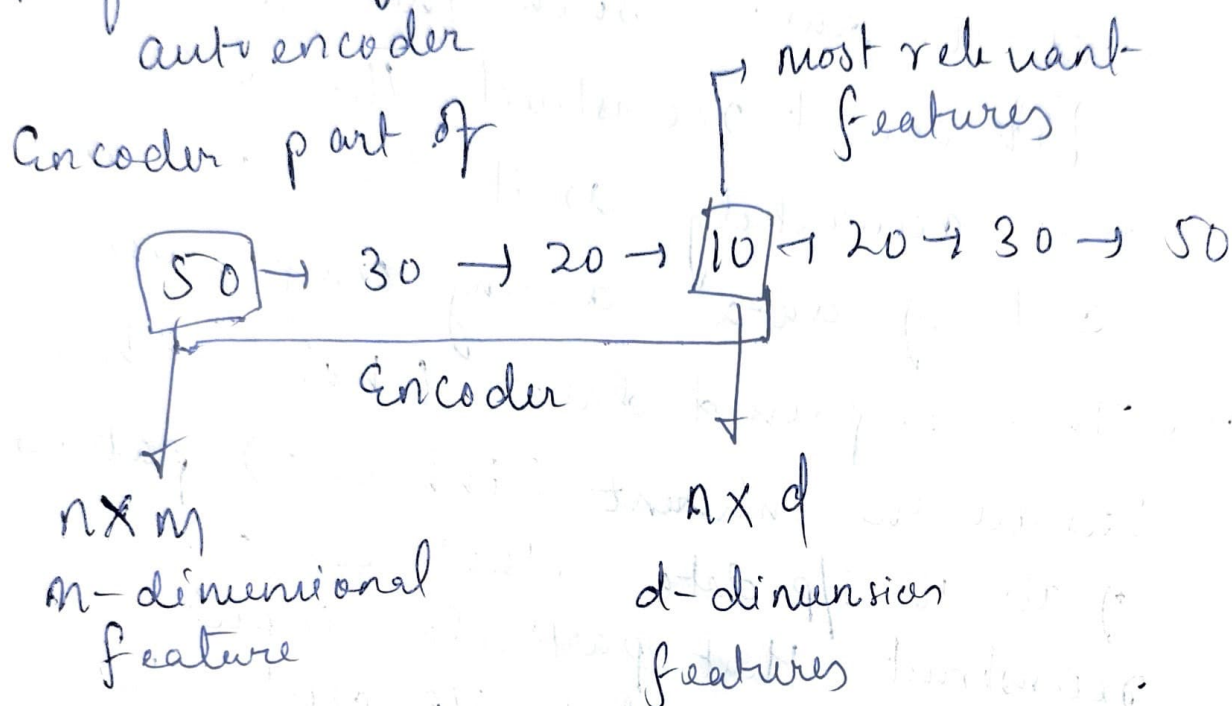 autoencoder
most relevant
features
Encoder part of
50 → 30 → 20 → 10 → 20 → 30 → 50
Encoder
n x m
m-dimensional
feature
n x d
d-dimension
features